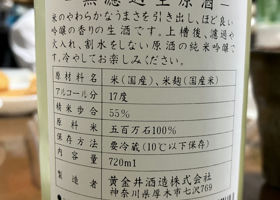 無濾過生原酒
米のやわらかなうまさを引き出し、ほど良い
吟醸の香りの生酒です。上槽後、濾過や
火入れ、割水をしない原酒の純米吟醸です。
冷やしてお楽しみください。
原材料名 米(国産)、米麹(国産米)
アルコール分 17度
精米歩合 55%
原料米 五百万石100%
保存方法 要冷蔵(10℃以下保存)
内容量 720ml
黄金井酒造株式会社
神奈川県厚木市七沢769